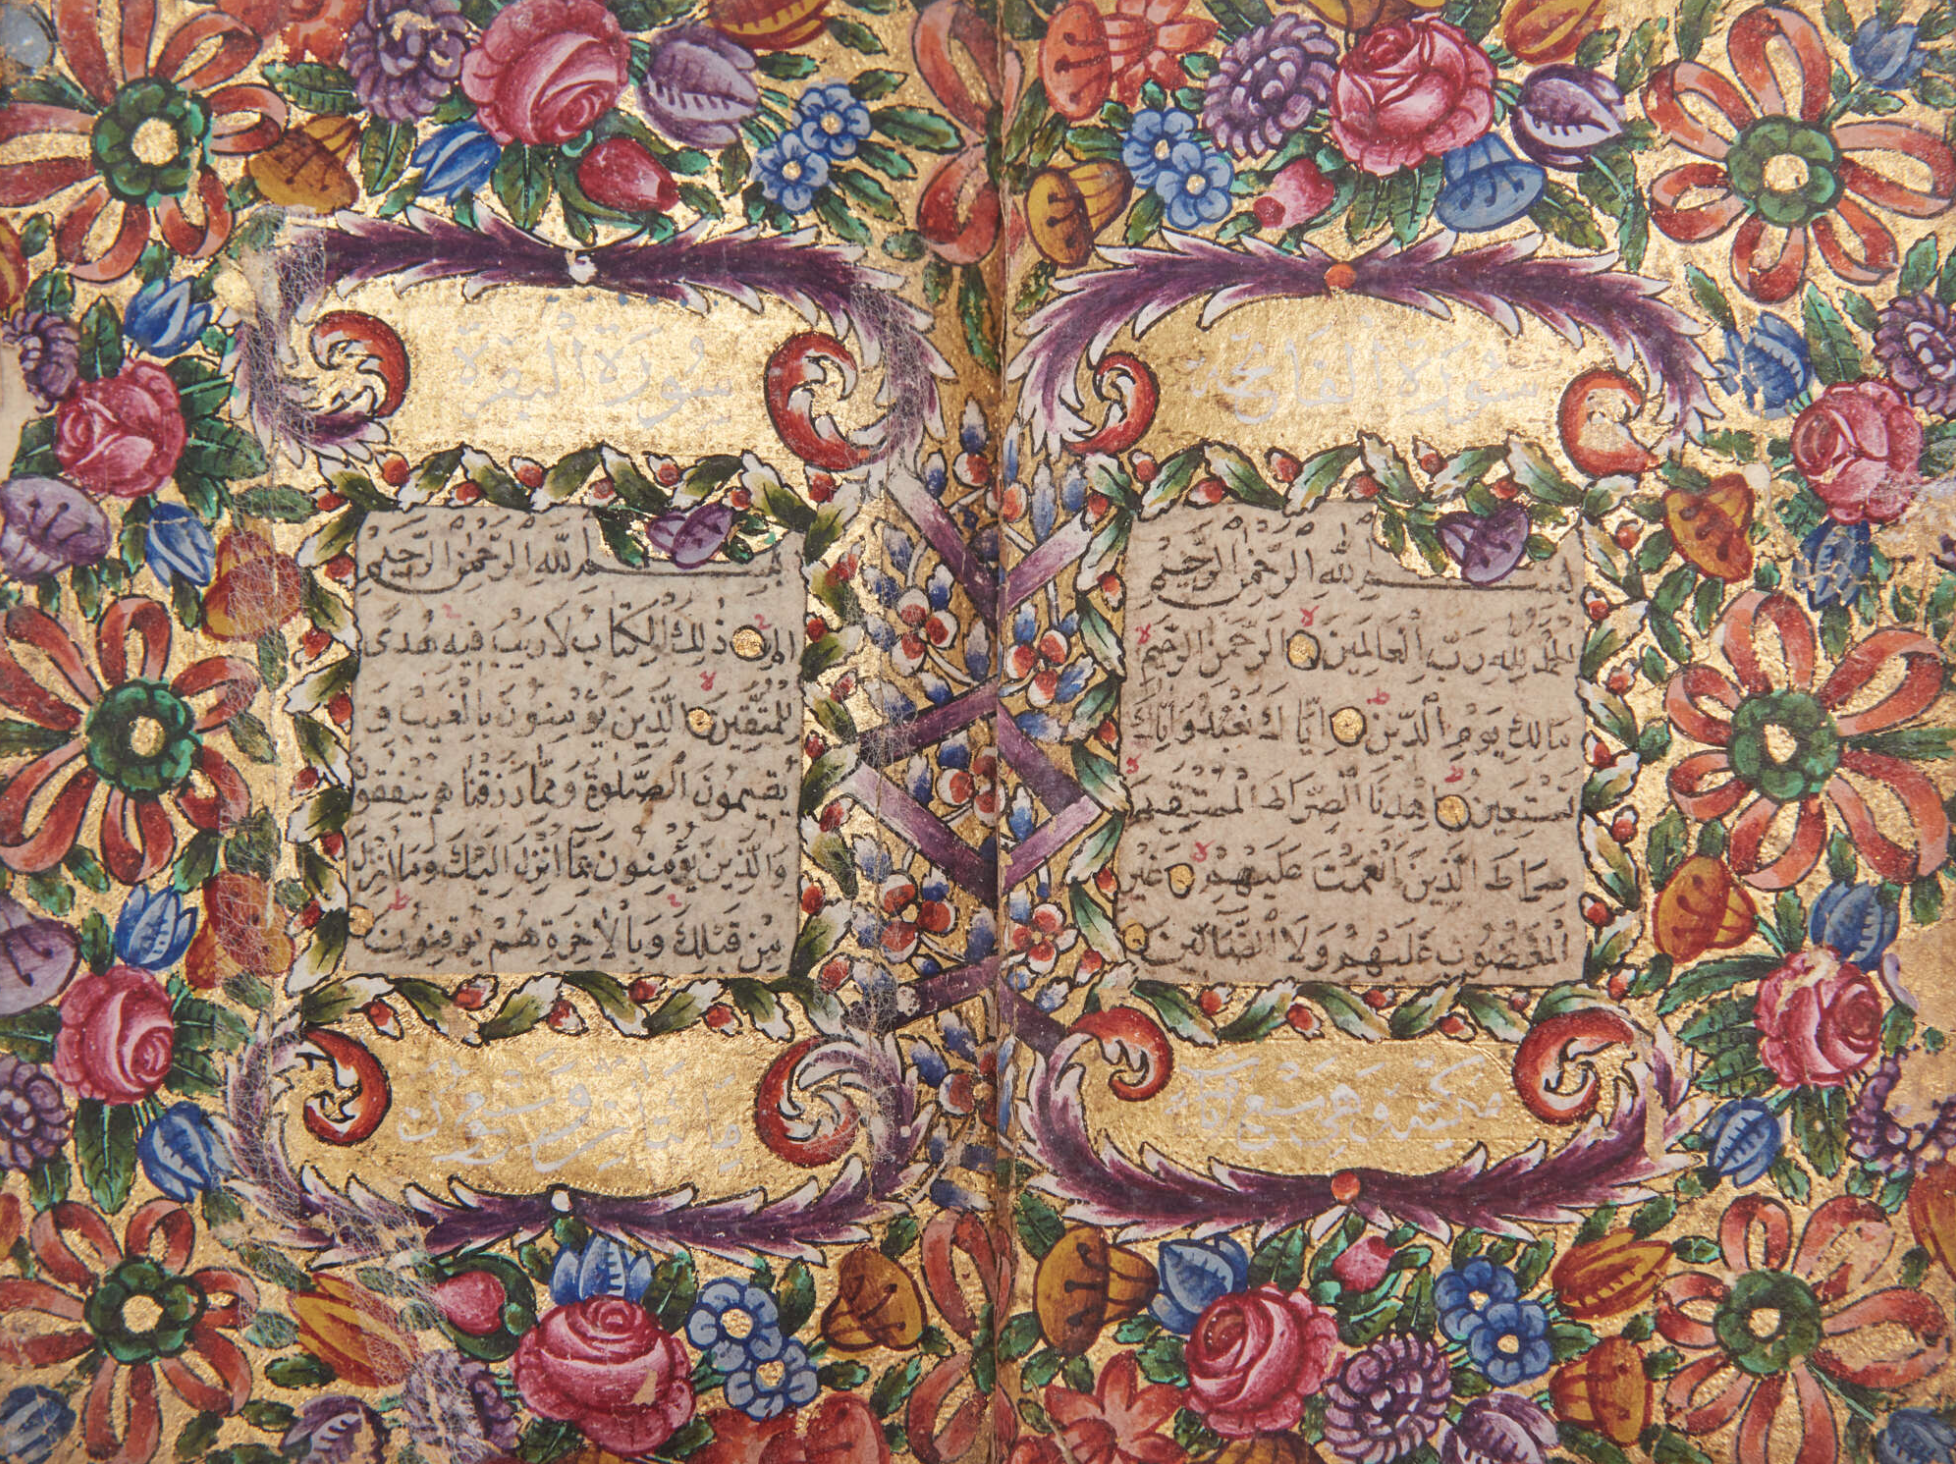 سُورَةُ الْفَاتِحَة
بِسْمِ اللّٰهِ الرَّحْمٰنِ الرَّحِيمِ
اَلْحَمْدُ لِلّٰهِ رَبِّ الْعَالَمِينَ لا اَلرَّحْمٰنِ الرَّحِيمِ لا
مَالِكِ يَوْمِ الدِّينِ ط اِيَّاكَ نَعْبُدُ وَاِيَّاكَ
نَسْتَعِينُ ط اِهْدِنَا الصِّرَاطَ الْمُسْتَقِيمَ لا
صِرَاطَ الَّذِينَ اَنْعَمْتَ عَلَيْهِمْ لا غَيْرِ
الْمَغْضُوبِ عَلَيْهِمْ وَلَا الضَّالِّينَ
مَكِّيَّة وَهِيَ سَبْعُ
سُورَةُ الْبَقَرَة
بِسْمِ اللّٰهِ الرَّحْمٰنِ الرَّحِيمِ
الم ذٰلِكَ الْكِتَابُ لَا رَيْبَ فِيهِ هُدًى
لِلْمُتَّقِينَ لا اَلَّذِينَ يُؤْمِنُونَ بِالْغَيْبِ وَ
يُقِيمُونَ الصَّلٰوةَ وَمِمَّا رَزَقْنَاهُمْ يُنْفِقُونَ
وَالَّذِينَ يُؤْمِنُونَ بِمَا اُنْزِلَ اِلَيْكَ وَمَا اُنْزِلَ
مِنْ قَبْلِكَ وَبِالْاٰخِرَةِ هُمْ يُوقِنُونَ ط